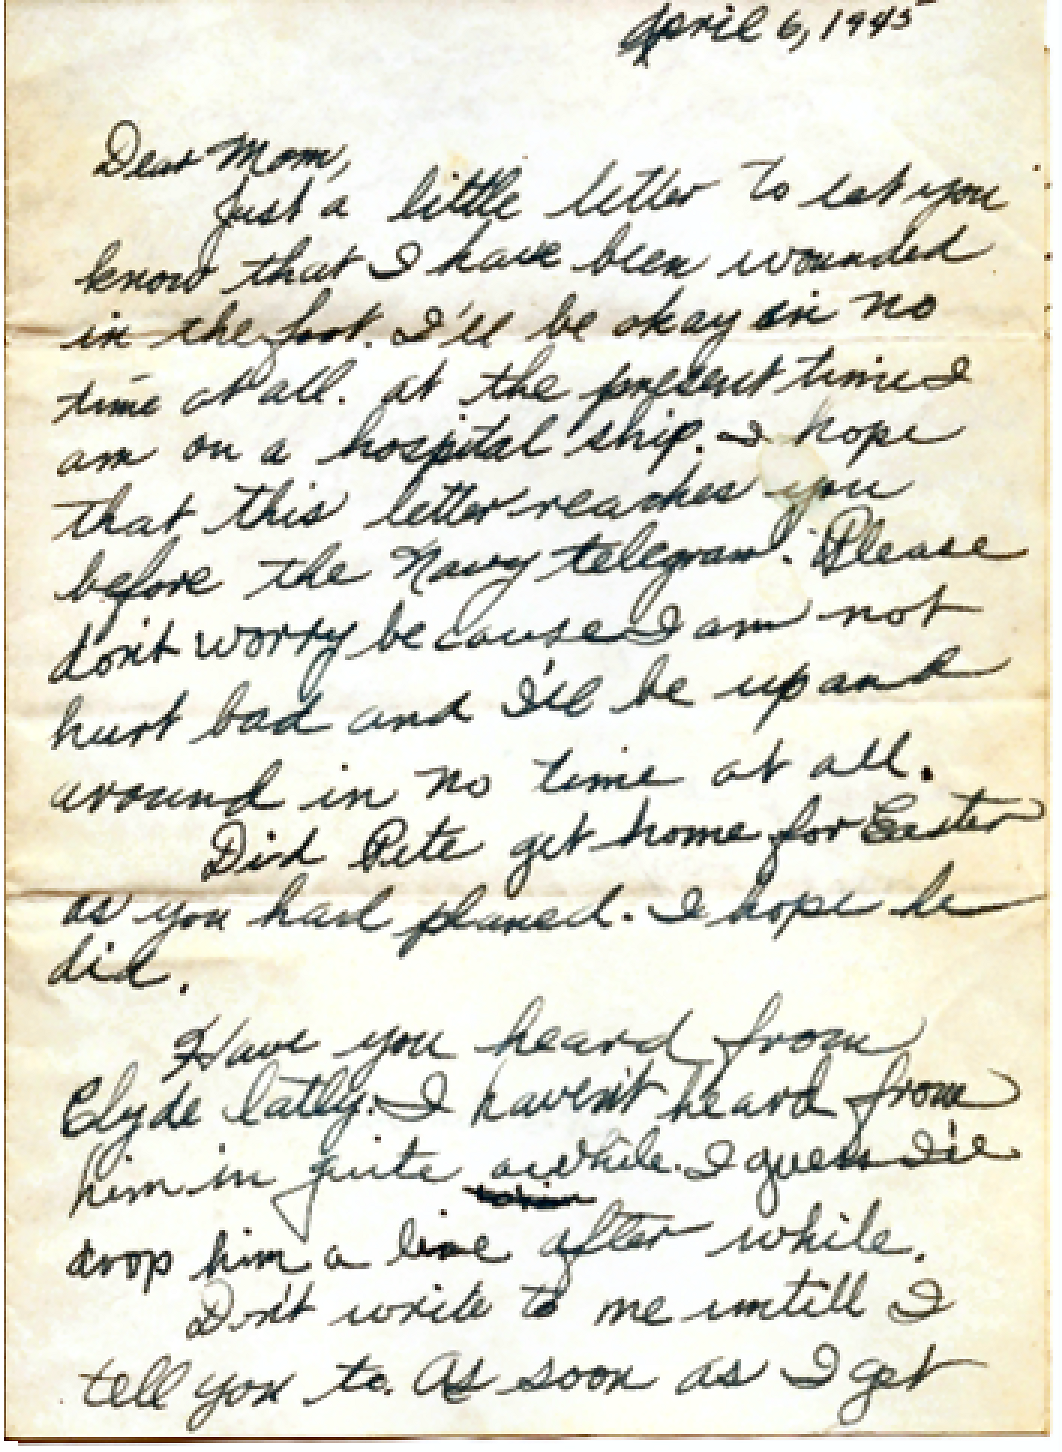 April 6, 1945
Dear Mom,
Just a little letter to let you
know that I have been wounded
in the foot. I'll be okay in no
time at all. at the present time I
am on a hospital ship. I hope
that this letter reaches you
before the Navy telegram. Please
don't worry because I am not
hurt bad and I'll be up and
around in no time at all.
Did Pete get home for Easter
as you had planed. I hope he
did.
Have you heard from
Clyde latly. I haven't heard from
him in quite awhile. I guess I'll
drop him a line after while.
Don't write to me untill I
tell you to. As soon as I get